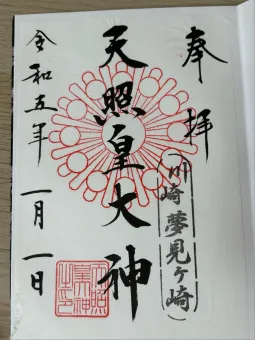 奉拝
(川崎夢見ヶ崎)
天照皇大神
令和五年 一月一日